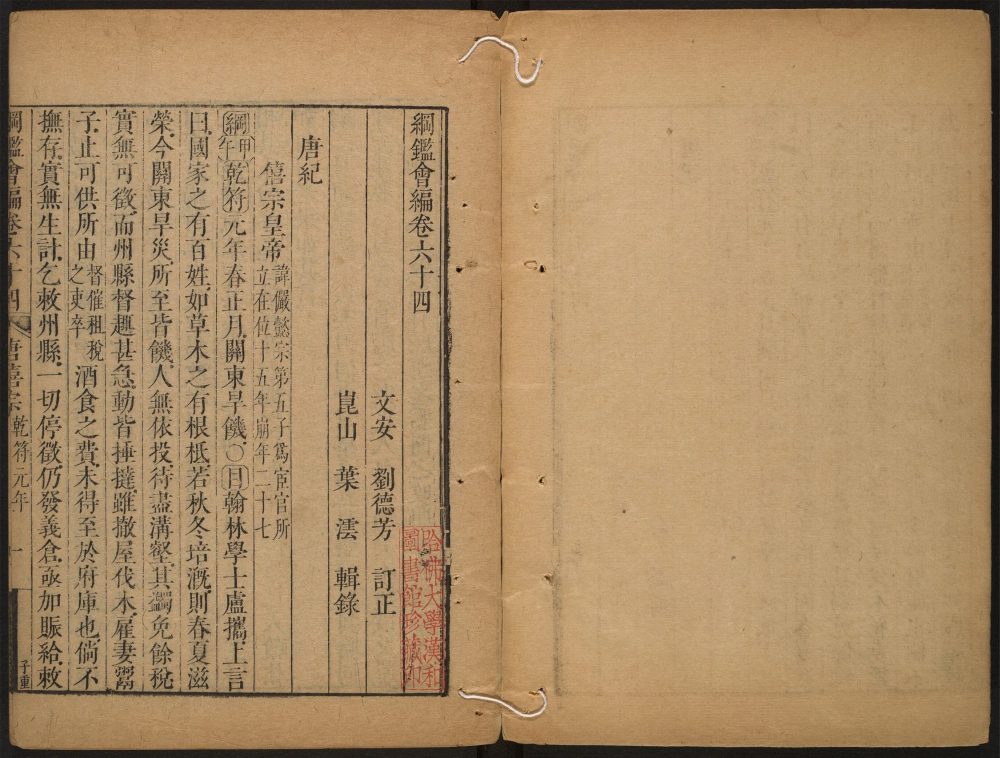 綱鑑會編卷六十四
文安 劉德芳 訂正
崑山 葉澐 輯錄
哈佛大學漢和
圖書館珍藏印
唐紀
僖宗皇帝 諱儼懿宗第五子爲宦官所立在位十五年崩年二十七
綱 甲午 乾符元年春正月關東旱饑○目翰林學士盧攜上言
曰國家之有百姓如草木之有根柢若秋冬培漑則春夏滋
榮今關東旱災所至皆饑人無依投待盡溝壑其蠲免餘稅
實無可徵而州縣督趣甚急動皆捶撻雖撤屋伐木雇妻鬻
子止可供所由 督催租稅之吏卒 酒食之費未得至於府庫也倘不
撫存實無生計乞敕州縣一切停徵仍發義倉亟加賑給敕
綱鑑會編卷六十四 唐僖宗 乾符元年 一
子重